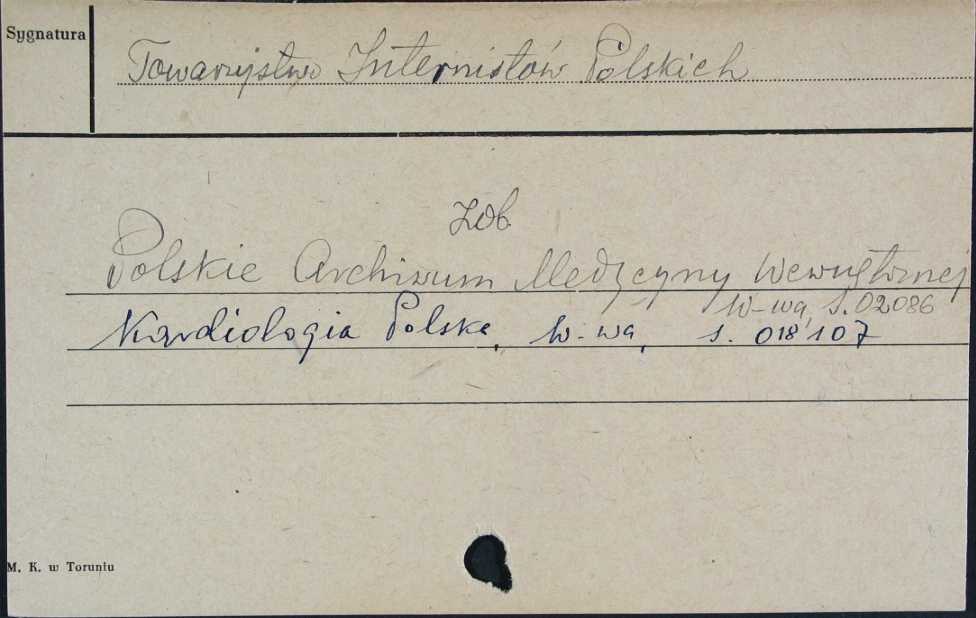 Sygnatura
Towarzystwo Internistów Polskich
zob
Polskie Archiwum Medycyny Wewnętrznej
W-wa, s. 02086
Kardiologia Polska, W-wa, s. 018107
M. K. w Toruniu